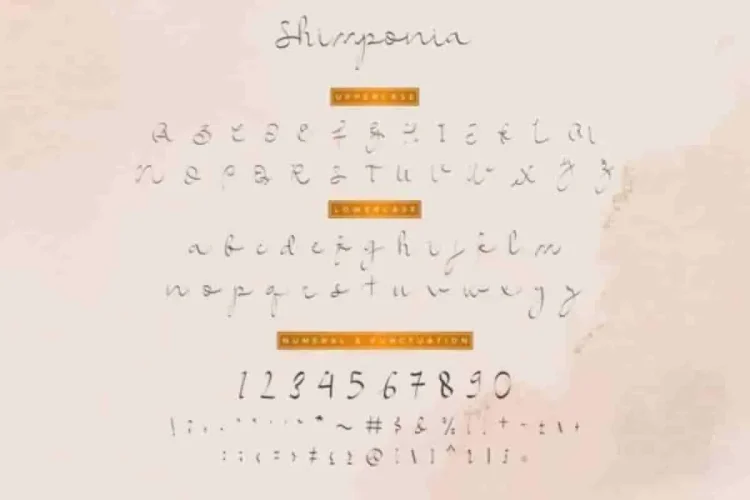 Shimponia
UPPERCASE
A B C D E F G H I J K L M
N O P Q R S T U V W X Y Z
LOWERCASE
a b c d e f g h i j k l m
n o p q r s t u v w x y z
NUMERAL & PUNCTUATION
1 2 3 4 5 6 7 8 9 0
~ # $ & %
@